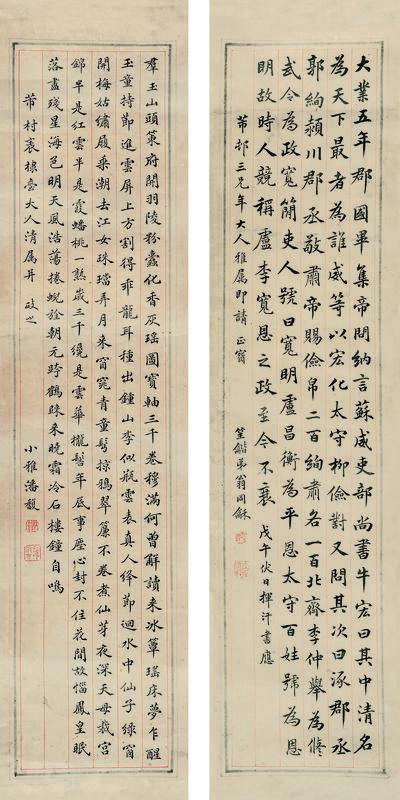 大業五年郡國畢集帝問納言蘇威吏部尚書牛宏曰其中清名
為天下最者為誰威等以宏化太守柳儉對又問其次曰涿郡丞
郭絢潁川郡丞敬肅帝賜儉帛二百絢肅各一百北齊李仲舉為脩
武令為政寬簡吏人號曰寬明盧昌衡為平恩太守百姓號為恩
明故時人競稱盧李寬恩之政至今不衰 戊午伏日揮汗書應
芾邨三兄年大人雅屬即請 正
弟翁同龢
羣玉山頭策府開羽陵粉蠹化香灰瑤圖寶軸三千卷穆滿何曾解讀來冰簟瑤床夢乍醒
玉童持節進雲屏上方割得乖龍耳種出鍾山李似瓶雲表真人絳節迴水中仙子綠窗
開梅姑繡履乘潮去江女珠璫弄月來窗窕青童髻掠鴉翠簾不卷煮仙芽夜深天母裁宮
錦半是紅雲半是霞蟠桃一熟歲三千纔是雲華攏髻年底事塵心封不住花間故惱鳳皇眠
落盡殘星海色明天風浩蕩捲蜺旌朝元跨鶴歸來晚霜冷石樓鐘自鳴
芾村襄棣臺大人清屬并 政之
小雅潘馥